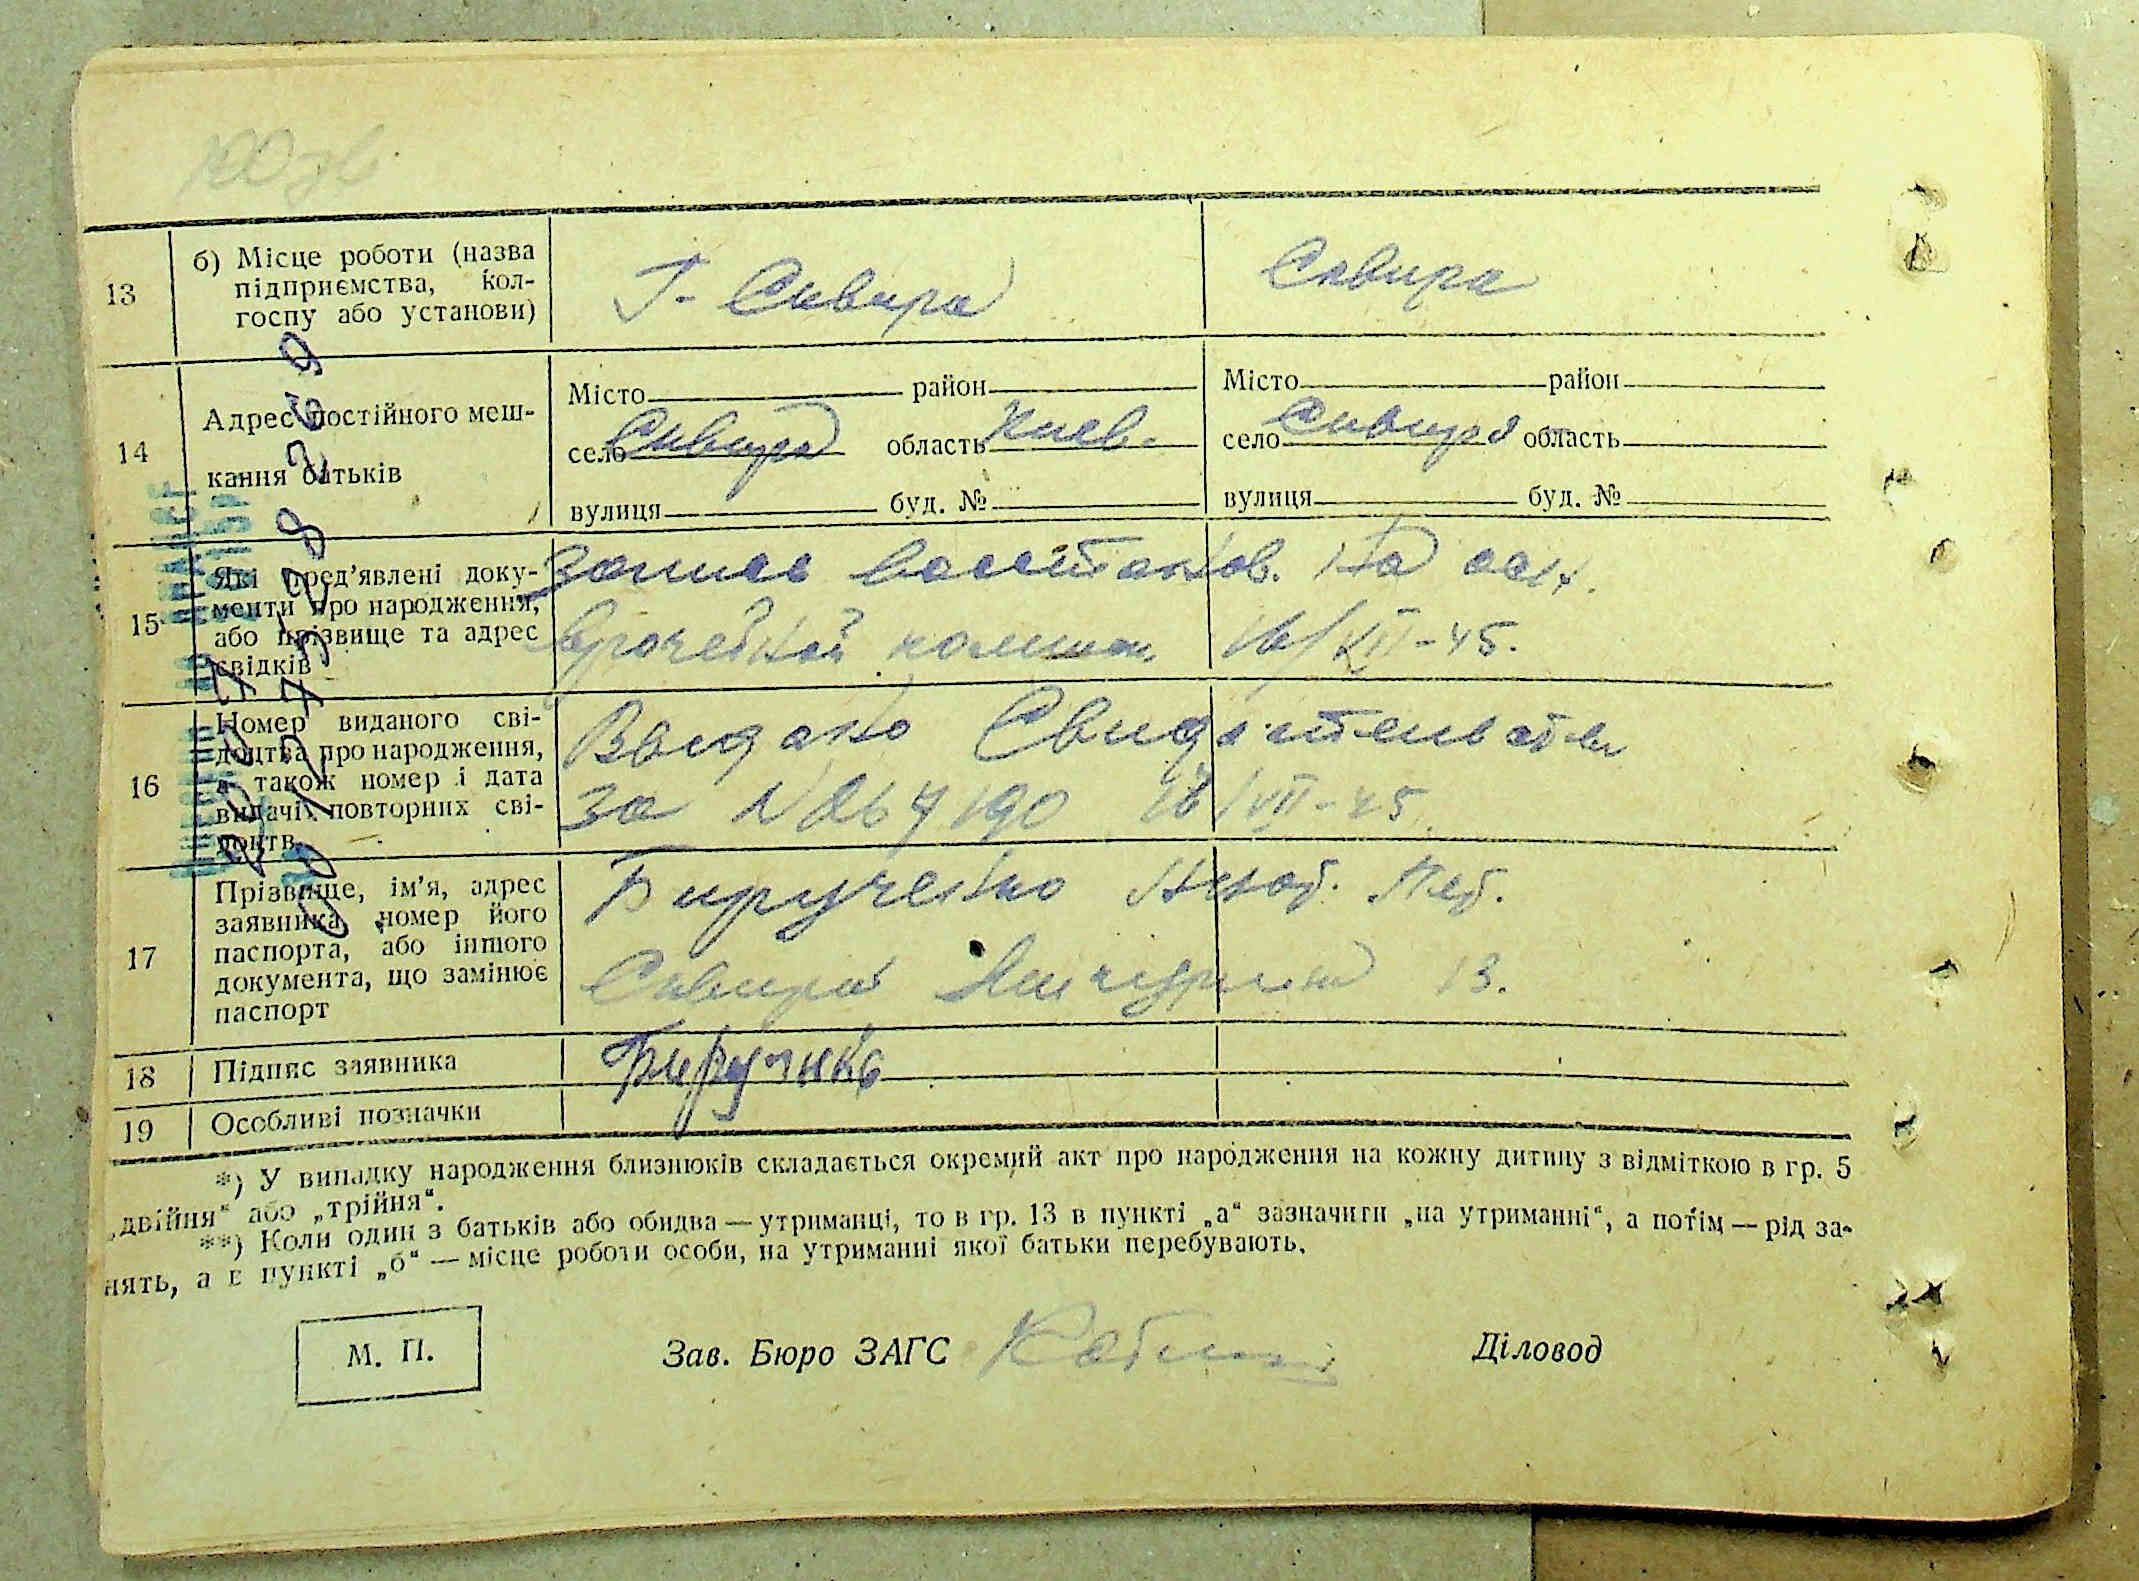 13
б) Місце роботи (назва
підприємства, кол-
госпу або установи)
Г- Сквира
Сквира
14
Адрес постійного меш-
кання батьків
Місто район
село Сквира область Киев.
вулиця буд. №
Місто район
село Сквира область
вулиця буд. №
15
Які пред’явлені доку-
менти про народження,
або прізвище та адрес
свідків
Запись восстанов. На осн.
врачебной комисии 16/VII-45.
16
Номер виданого сві-
доцтва про народження,
а також номер і дата
видачі повторних сві-
доцтв
Выдано Свидетельство
за № 067190 16/VII-45.
17
Прізвище, ім’я, адрес
заявника, номер його
паспорта, або іншого
документа, що замінює
паспорт
Бирученко
Сквира 13.
18
Підпис заявника
19
Особливі позначки
*) У випадку народження близнюків складається окремий акт про народження на кожну дитину з відміткою в гр. 5
„двійня“ або „трійня“.
**) Коли один з батьків або обидва — утриманці, то в гр. 13 в пункті „а“ зазначити „на утриманні“, а потім — рід за-
нять, а в пункті „б“ — місце роботи особи, на утриманні якої батьки перебувають.
М. П.
Зав. Бюро ЗАГС
Діловод